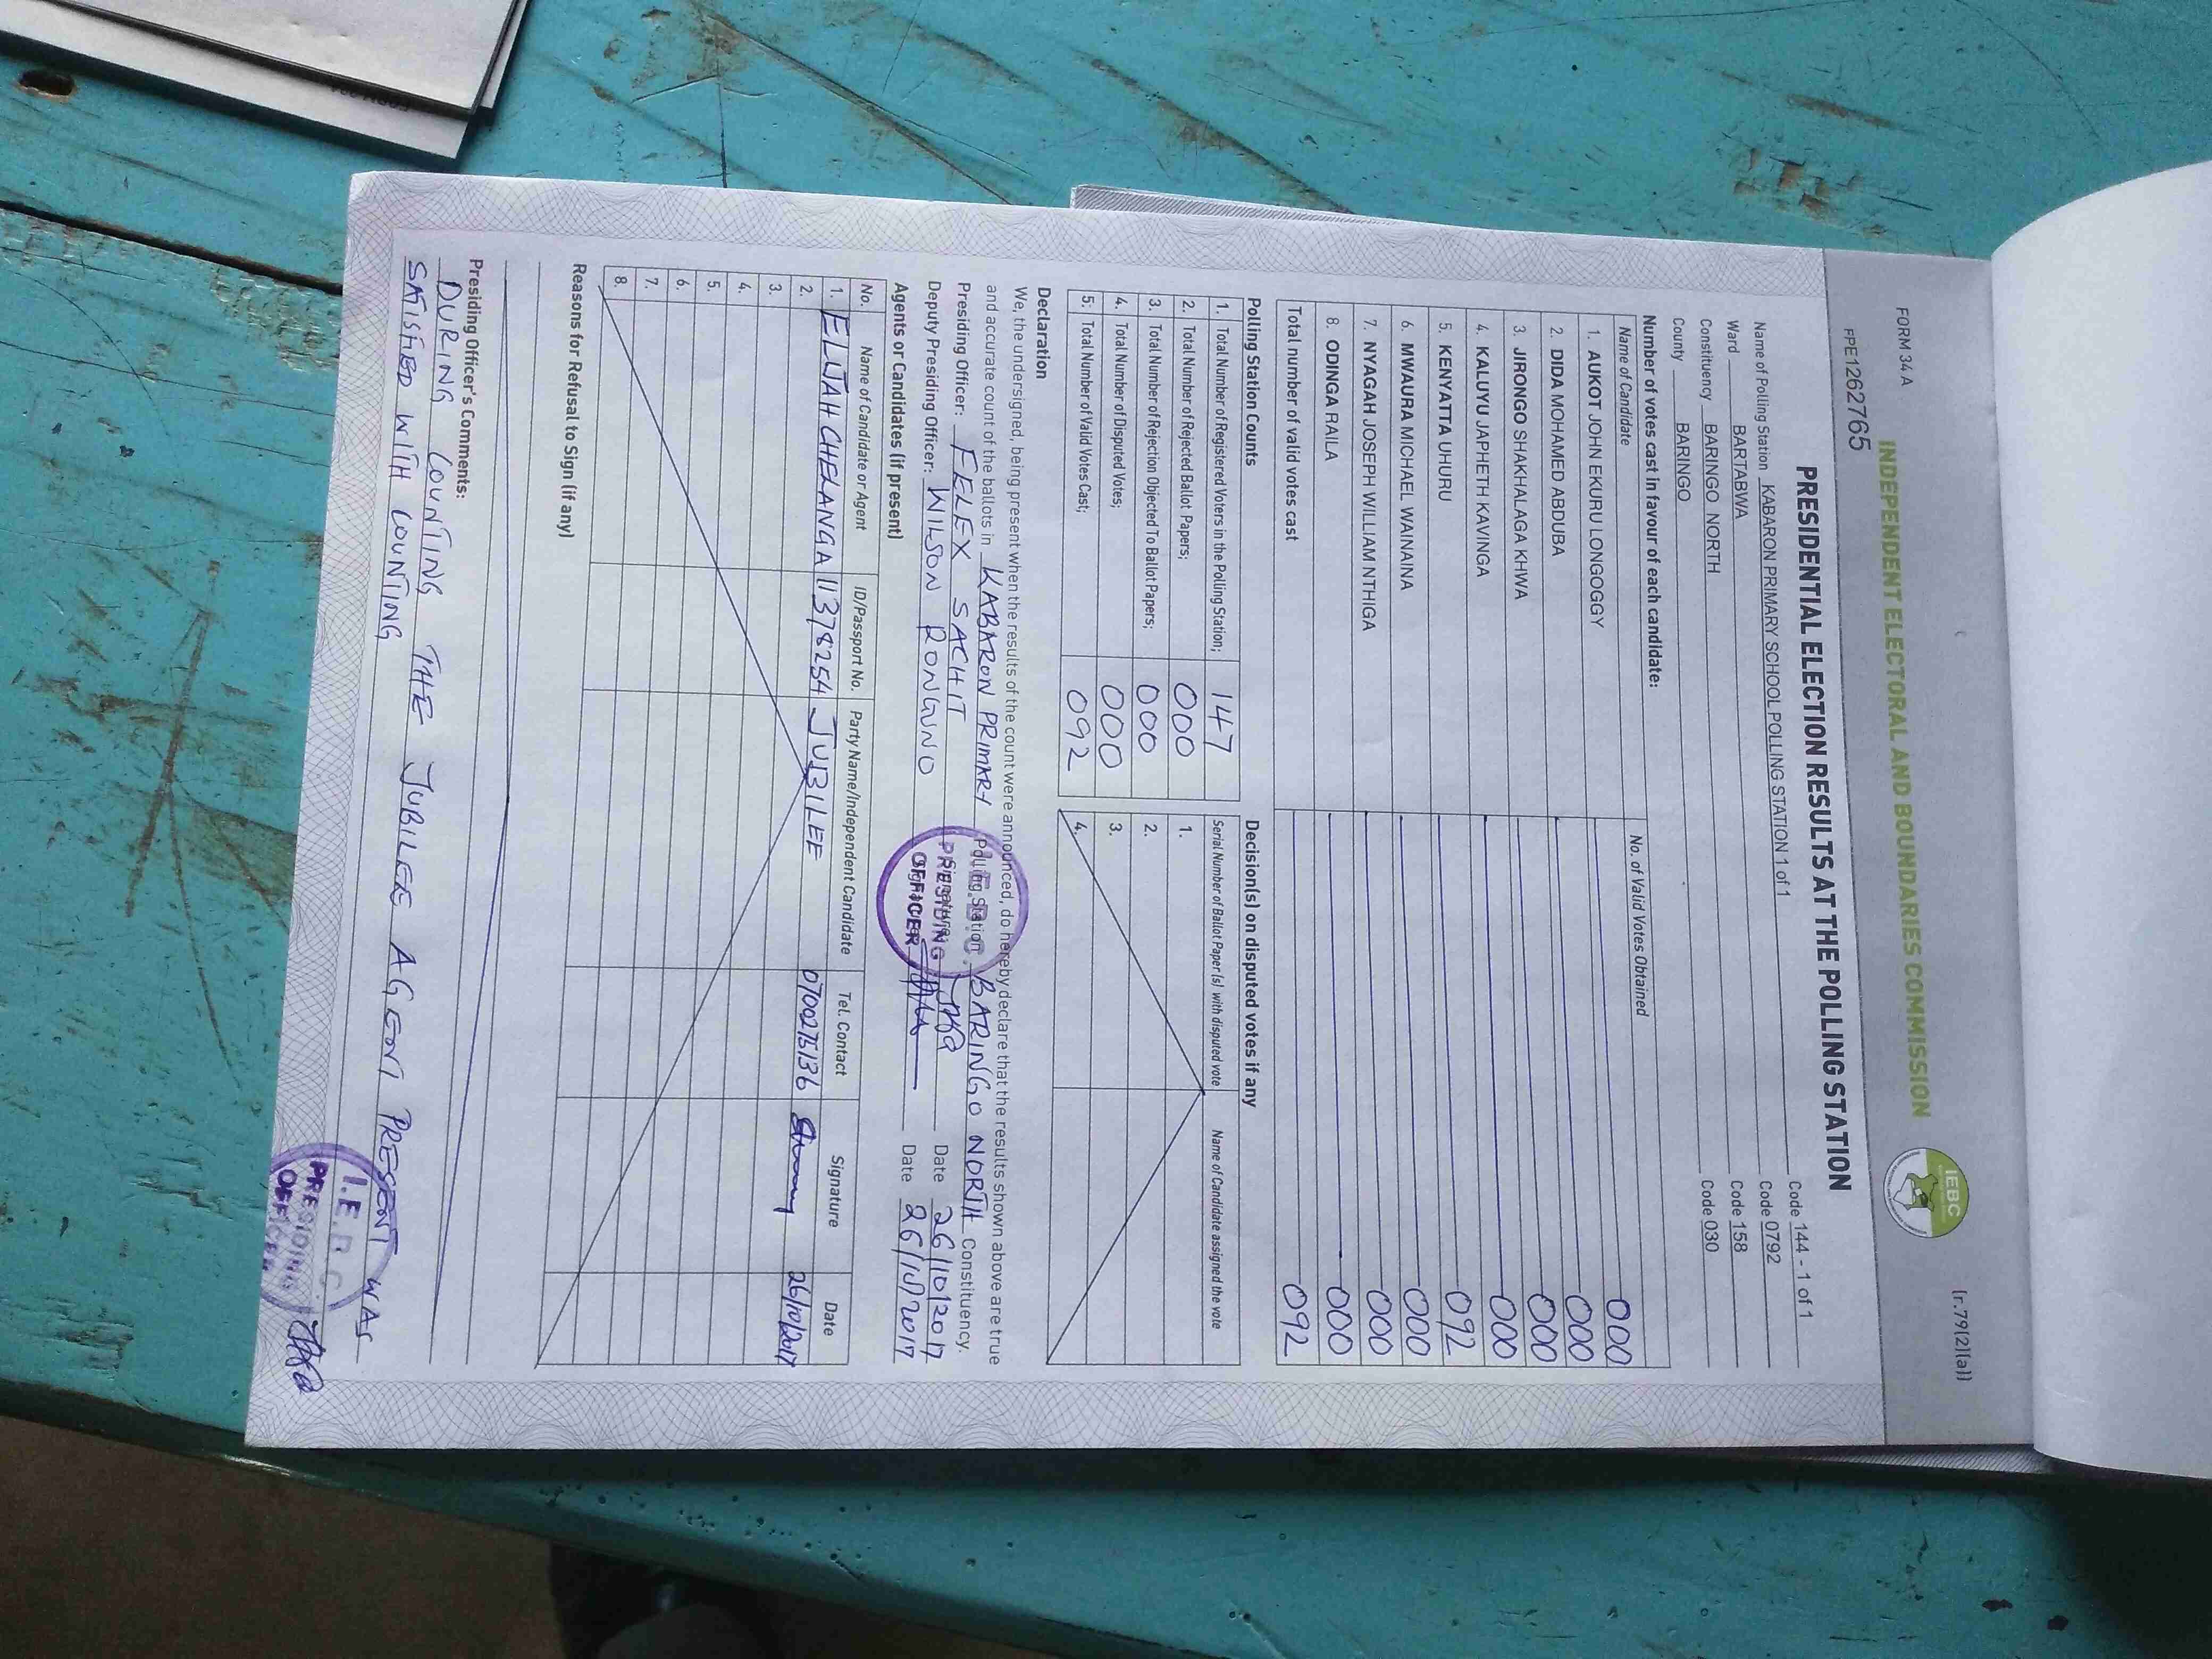 FORM 34 A
(r.79(2)(a))
INDEPENDENT ELECTORAL AND BOUNDARIES COMMISSION
IEBC
PPE1262765
PRESIDENTIAL ELECTION RESULTS AT THE POLLING STATION
Name of Polling Station KABARON PRIMARY SCHOOL POLLING STATION 1 of 1 Code 144 - 1 of 1
Ward BARTABWA Code 0792
Constituency BARINGO NORTH Code 158
County BARINGO Code 030
Number of votes cast in favour of each candidate:
Name of Candidate No. of Valid Votes Obtained
1. AUKOT JOHN EKURU LONGOGGY 000
2. DIDA MOHAMED ABDUBA 000
3. JIRONGO SHAKHALAGA KHWA 000
4. KALUYU JAPHETH KAVINGA 000
5. KENYATTA UHURU 092
6. MWAURA MICHAEL WAINAINA 000
7. NYAGAH JOSEPH WILLIAM NTHIGA 000
8. ODINGA RAILA 000
Total number of valid votes cast 092
Polling Station Counts
1. Total Number of Registered Voters in the Polling Station; 147
2. Total Number of Rejected Ballot Papers; 000
3. Total Number of Rejection Objected To Ballot Papers; 000
4. Total Number of Disputed Votes; 000
5. Total Number of Valid Votes Cast; 092
Decision(s) on disputed votes if any
Serial Number of Ballot Paper(s) with disputed vote Name of Candidate assigned the vote
1.
2.
3.
4.
Declaration
We, the undersigned, being present when the results of the count were announced, do hereby declare that the results shown above are true
and accurate count of the ballots in KABARON PRIMARY Polling Station BARINGO NORTH Constituency.
Presiding Officer: FELEX SACHIT Signature Date 26/10/2017
Deputy Presiding Officer: WILSON RONGUNO Date 26/10/2017
I.E.B.C.
PRESIDING
OFFICER
Agents or Candidates (if present)
No. Name of Candidate or Agent ID/Passport No. Party Name/Independent Candidate Tel. Contact Signature Date
1. ELIJAH CHELANGA 11378254 JUBILEE 0700275136 26/10/2017
2.
3.
4.
5.
6.
7.
8.
Reasons for Refusal to Sign (if any)
Presiding Officer's Comments:
DURING COUNTING THE JUBILEE AGENT PRESENT WAS
SATISFIED WITH COUNTING
I.E.B.C.
PRESIDING
OFFICER